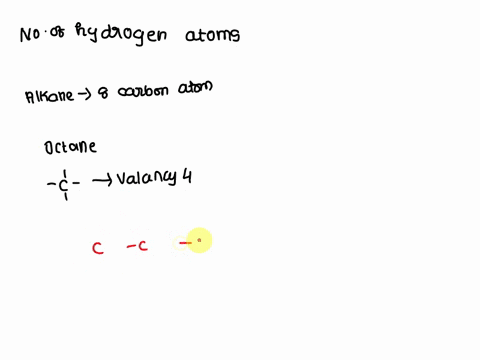 No. of hydrogen atoms
Alkane → 8 carbon atom
Octane
-C- → Valancy 4
C -C -